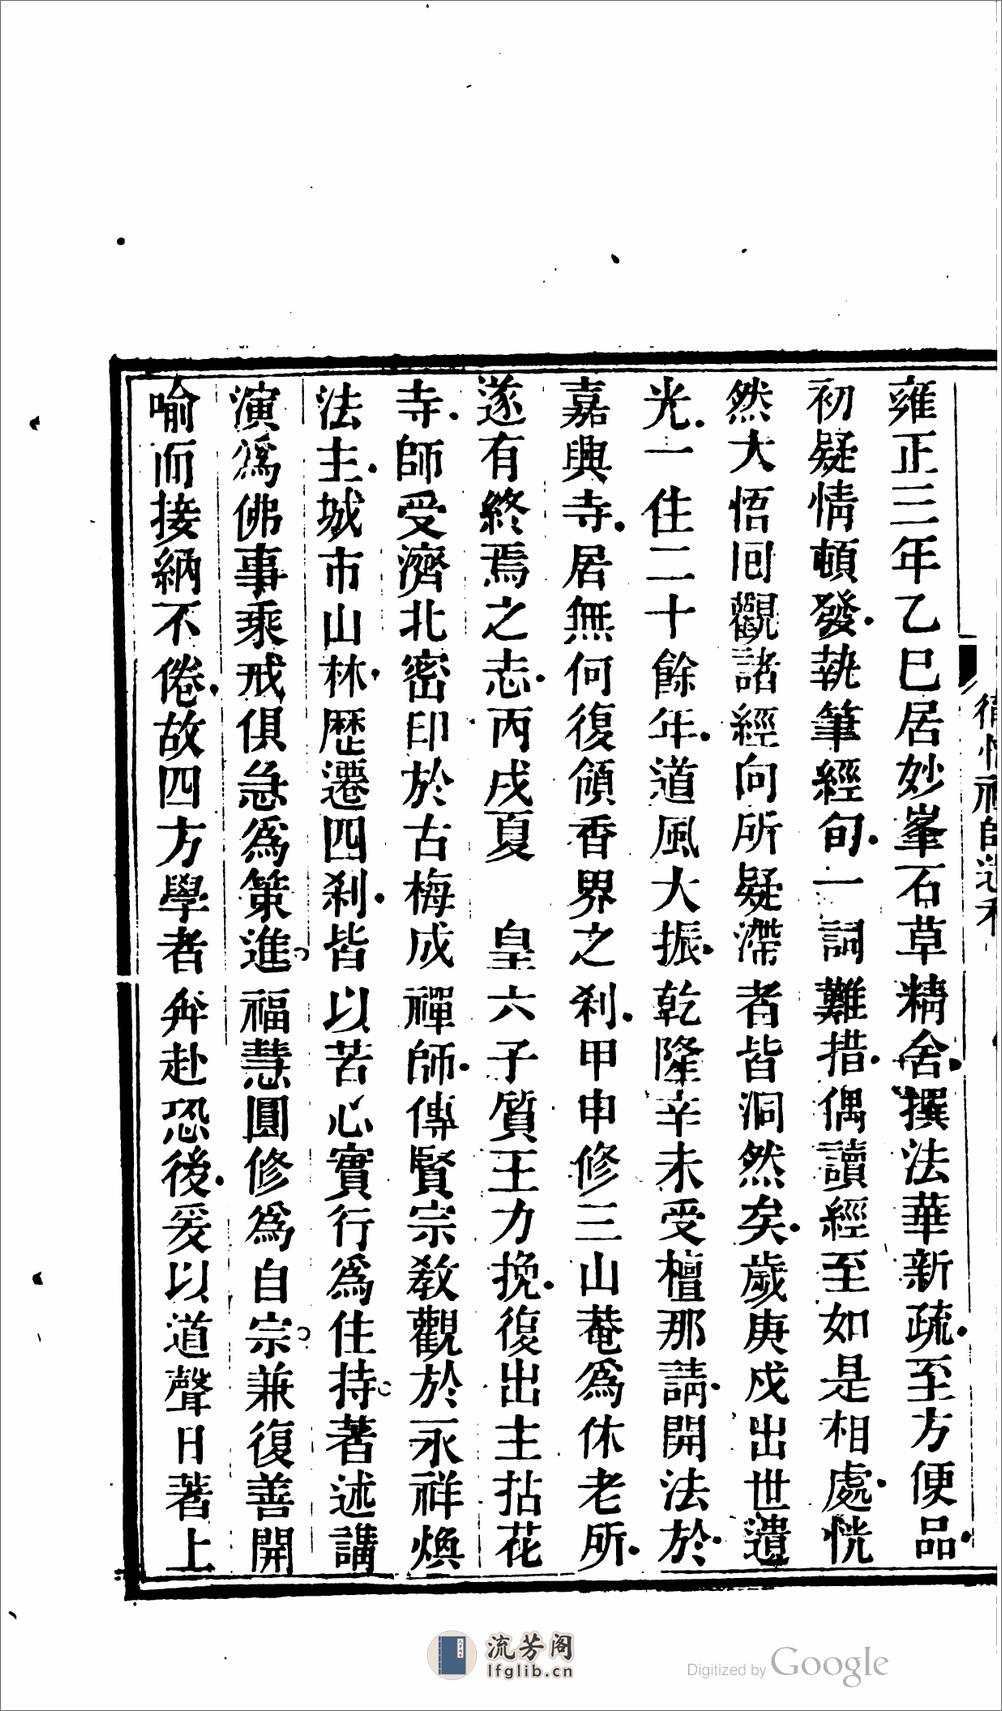 雍正三年乙巳居妙峯石草精舍撰法華新疏至方便品
初疑情頓發執筆經旬一詞難措偶讀經至如是相處恍
然大悟回觀諸經向所疑滯者皆洞然矣歲庚戍出世遺
光一住二十餘年道風大振乾隆辛未受檀那請開法於
嘉興寺居無何復領香界之刹甲申修三山菴爲休老所
遂有終焉之志丙戌夏　皇六子質王力挽復出主拈花
寺師受濟北密印於古梅成禪師傳賢宗教觀於永祥煥
法主城市山林歷遷四刹皆以苦心實行爲住持著述講
演爲佛事乘戒俱急爲策進福慧圓修爲自宗兼復善開
喻而接納不倦故四方學者奔赴恐後爰以道聲日著上
流芳阁
lfglib.cn
Digitized by Google